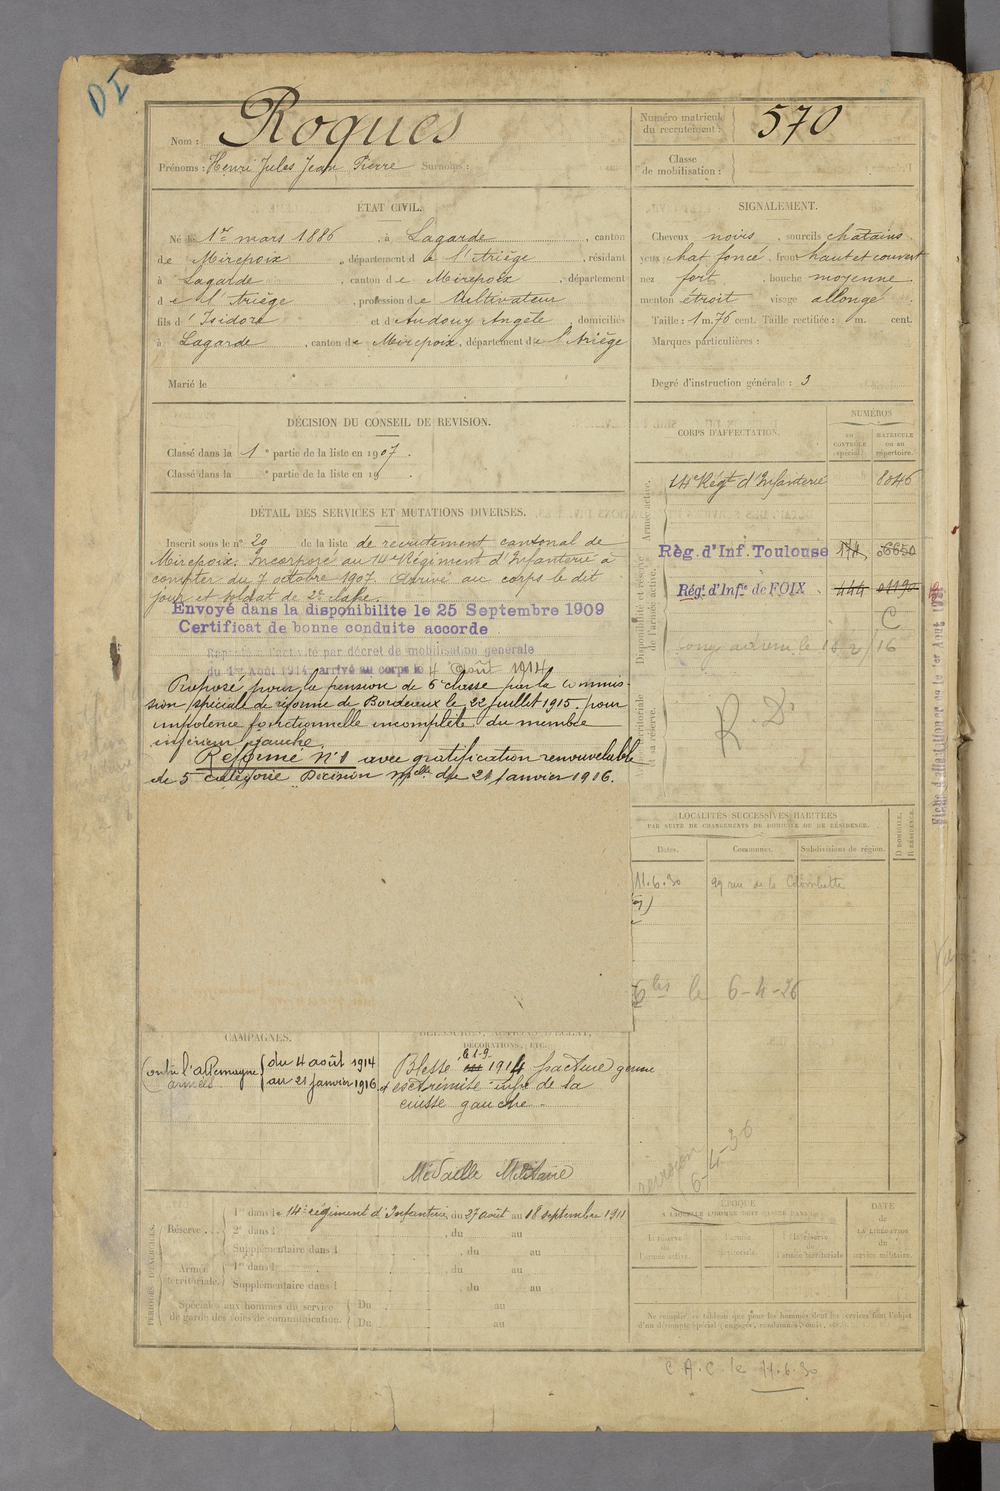 DI
Nom : Roques
Prénoms : Henri Jules Jean Pierre Surnoms :
Numéro matricule du recrutement : 570
Classe de mobilisation :
ÉTAT CIVIL.
Né le 1er mars 1886, à Lagarde, canton
de Mirepoix, département de l'Ariège, résidant
à Lagarde, canton de Mirepoix, département
de l'Ariège, profession de Cultivateur
fils d'Isidore et d'Audouy Angèle, domiciliés
à Lagarde, canton de Mirepoix, département de l'Ariège
Marié le
SIGNALEMENT.
Cheveux noirs, sourcils chatains
yeux chat foncé, front haut et couvert
nez fort, bouche moyenne
menton étroit visage allongé
Taille : 1 m. 76 cent. Taille rectifiée : m. cent.
Marques particulières :
Degré d'instruction générale : 3
DÉCISION DU CONSEIL DE REVISION.
Classé dans la 1e partie de la liste en 1907.
Classé dans la e partie de la liste en 19 .
DÉTAIL DES SERVICES ET MUTATIONS DIVERSES.
Inscrit sous le n° 20 de la liste de recrutement cantonal de
Mirepoix. Incorporé au 14e Régiment d'Infanterie à
compter du 7 octobre 1907. Arrivé au corps le dit
jour et soldat de 2e classe.
Envoyé dans la disponibilite le 25 Septembre 1909
Certificat de bonne conduite accorde
Rappelé à l'activité par décret de mobilisation générale
du 1er Août 1914, arrivé au corps le 4 Août 1914
Proposé pour la pension de 6e classe par la commis-
sion spéciale de réforme de Bordeaux le 22 juillet 1915. pour
impotence fonctionnelle incomplète du membre
inférieur gauche.
Réformé N°1 avec gratification renouvelable
de 5e catégorie Décision Mlle du 21 Janvier 1916.
CORPS D'AFFECTATION.
NUMÉROS
AU CONTRÔLE spécial.
MATRICULE ou au répertoire.
Armée active.
14e Régt d'Infanterie 8046
Disponibilité et réserve de l'armée active.
Rég. d'Inf. Toulouse 174
Régt d'Infie de FOIX . 444 01190
C
R. D.
Armée territoriale et sa réserve.
LOCALITÉS SUCCESSIVES HABITÉES
PAR SUITE DE CHANGEMENTS DE DOMICILE OU DE RÉSIDENCE.
Dates. Communes. Subdivisions de région. D DOMICILE, R RÉSIDENCE.
11.6.30 99 rue de la Colombette
le 6-4-26
CAMPAGNES.
Contre l'allemagne du 4 août 1914
au 21 janvier 1916
BLESSURES, ACTIONS D'ÉCLAT, DÉCORATIONS, ETC.
Blessé le 1-9 1914 fracture genou
et extrémité infre de la
cuisse gauche.
Médaille Militaire
revision
6-4-36
PÉRIODES D'EXERCICES.
Réserve . . . 1re dans le 14e régiment d'Infanterie du 27 août au 18 septembre 1911
2e dans l , du au
Supplémentaire dans l , du au
Armée territoriale. 1re dans l , du au
Supplémentaire dans l , du au
Spéciales aux hommes du service de garde des voies de communication. Du au
Du au
ÉPOQUE
À LAQUELLE L'HOMME DOIT PASSER DANS
la réserve de l'armée active. l'armée territoriale. la réserve de l'armée territoriale
DATE de LA LIBÉRATION du service militaire.
Ne remplir ce tableau que pour les hommes dont les services font l'objet
d'un décompte spécial (engagés, condamnés, omis, etc.).
C.A.C. le 11.6.30